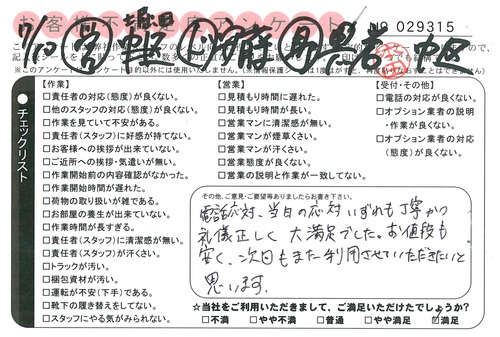 お客様不満足度アンケート
堀田
7/10
No 029315
チェックリスト
【作業】
□責任者の対応(態度)が良くない。
□他のスタッフの対応(態度)が良くない。
□作業を見ていて不安がある。
□責任者(スタッフ)に好感が持てない。
□お客様への挨拶が出来ていない。
□ご近所への挨拶・気遣いが無い。
□作業開始前の内容確認がなかった。
□作業開始時間が遅れた。
□荷物の取り扱いが雑である。
□お部屋の養生が出来ていない。
□作業時間が長すぎる。
□責任者(スタッフ)に清潔感が無い。
□責任者(スタッフ)が汗くさい。
□トラックが汚い。
□梱包資材が汚い。
□運転が不安(下手)である。
□靴下の履き替えをしてない。
□スタッフにやる気がみられない。
【営業】
□見積もり時間に遅れた。
□見積もり時間が長い。
□営業マンに清潔感が無い。
□営業マンが煙草くさい。
□営業マンが汗くさい。
□営業態度が良くない。
□営業の説明と作業が一致してない。
【受付・その他】
□電話の対応が良くない。
□オプション業者の説明
・作業が良くない。
□オプション業者の対応
(態度)が良くない。
その他、ご意見・ご要望等ありましたらお書き下さい。
電話応対、当日の応対いずれも丁寧かつ
礼儀正しく大満足でした。お値段も
安く、次回もまた利用させていただきたいと
思います。
☆当社をご利用いただきまして、ご満足いただけたでしょうか?
□不満 □やや不満 □普通 □やや満足 ☑満足